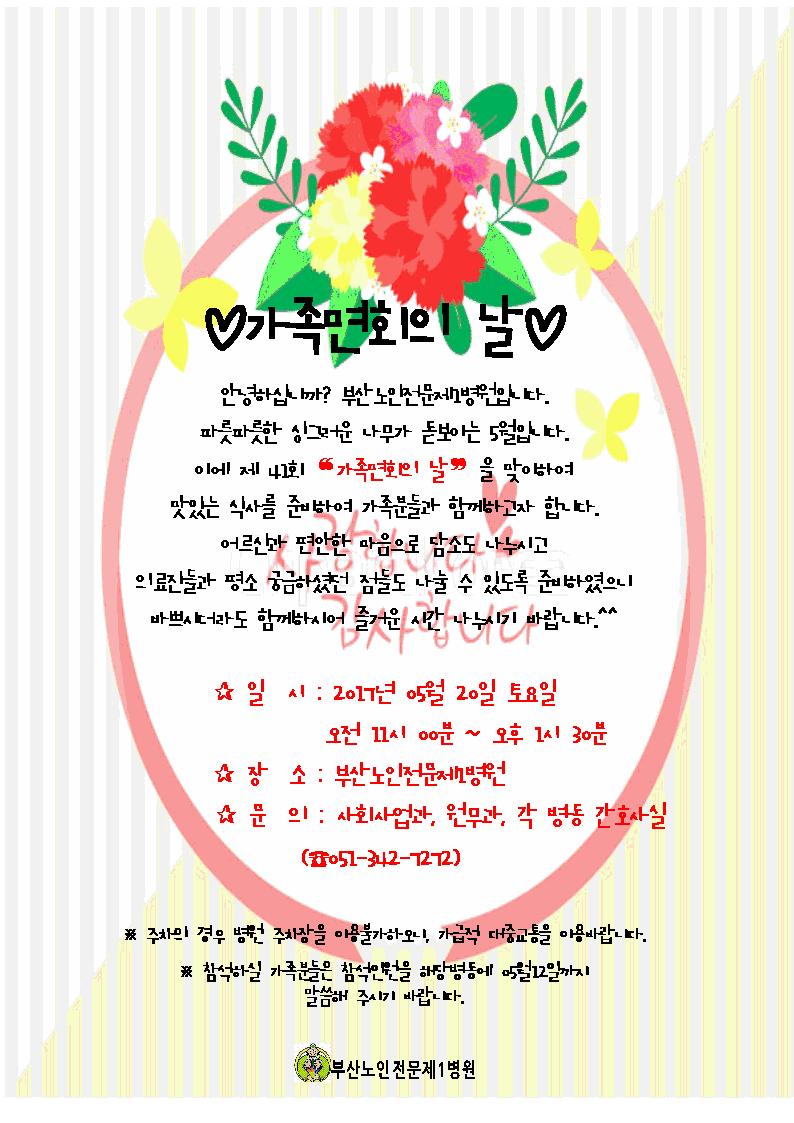 ♡가족면회의 날♡
안녕하십니까? 부산노인전문제1병원입니다.
파릇파릇한 싱그러운 나무가 돋보이는 5월입니다.
이에 제 41회 “가족면회의 날” 을 맞이하여
맛있는 식사를 준비하여 가족분들과 함께하고자 합니다.
어르신과 편안한 마음으로 담소도 나누시고
의료진들과 평소 궁금하셨던 점들도 나눌 수 있도록 준비하였으니
바쁘시더라도 함께하시어 즐거운 시간 나누시기 바랍니다.^^
사랑합니다
감사합니다
☆ 일 시 : 2017년 05월 20일 토요일
오전 11시 00분 ~ 오후 1시 30분
☆ 장 소 : 부산노인전문제1병원
☆ 문 의 : 사회사업과, 원무과, 각 병동 간호사실
(☎051-342-7272)
※ 주차의 경우 병원 주차장을 이용불가하오니, 가급적 대중교통을 이용바랍니다.
※ 참석하실 가족분들은 참석인원을 해당병동에 05월12일까지
말씀해 주시기 바랍니다.
부산노인전문제1병원